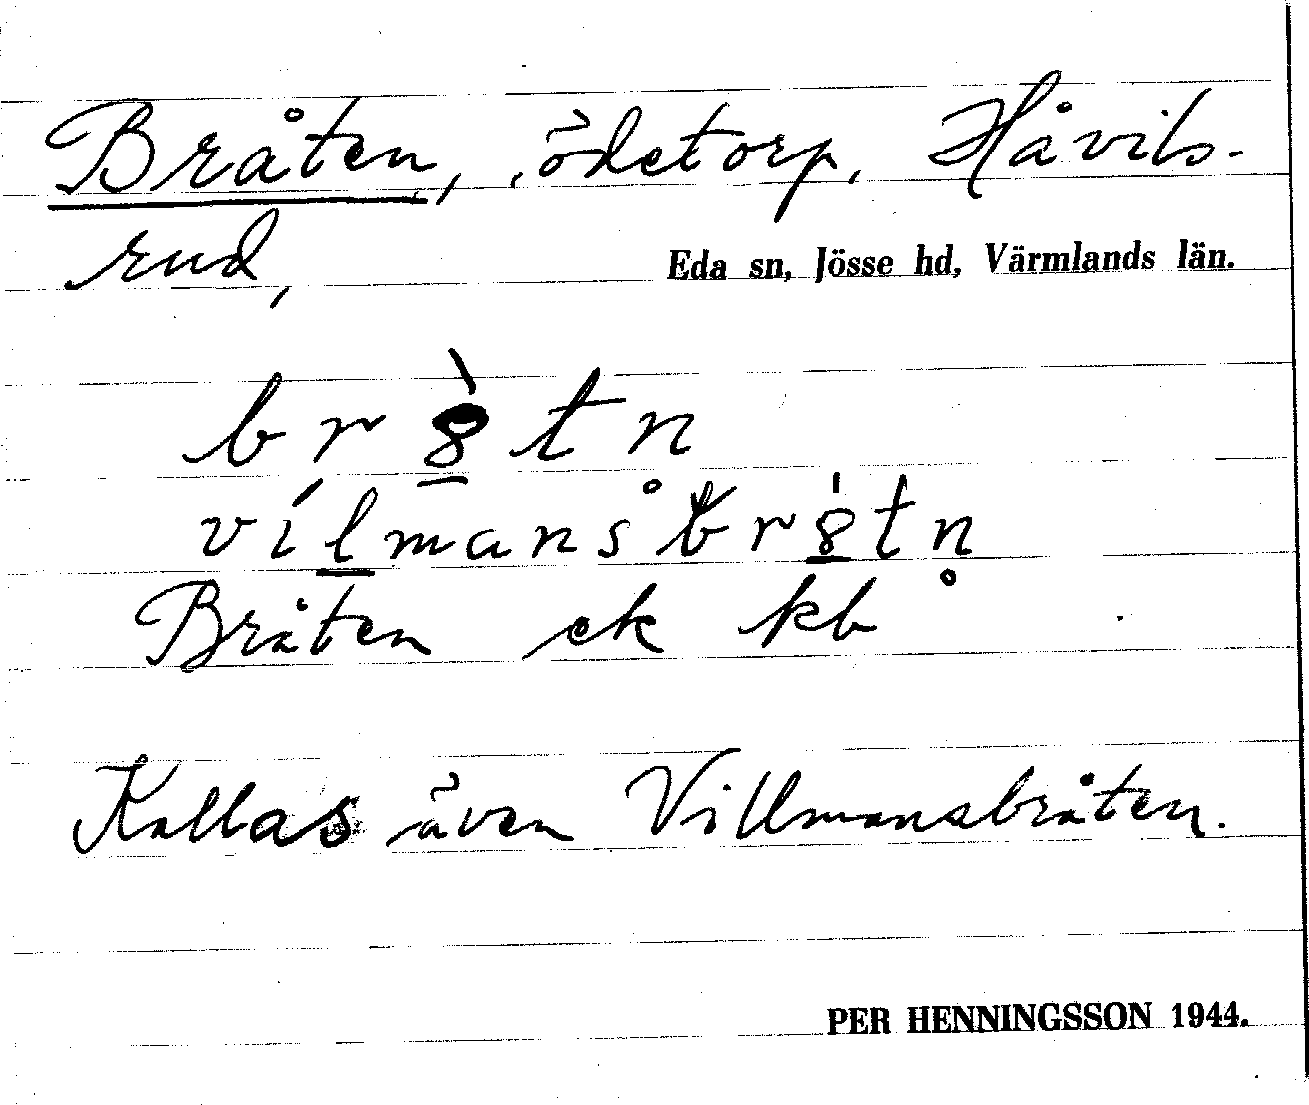 Bråten, ödetorp, Håvils-
rud,
Eda sn, Jösse hd, Värmlands län.
br8̲̀tn
víl̲mansb̊r8̲̍tn̥
Bråten ek kb
Kallas även Villmansbråten.
PER HENNINGSSON 1944.